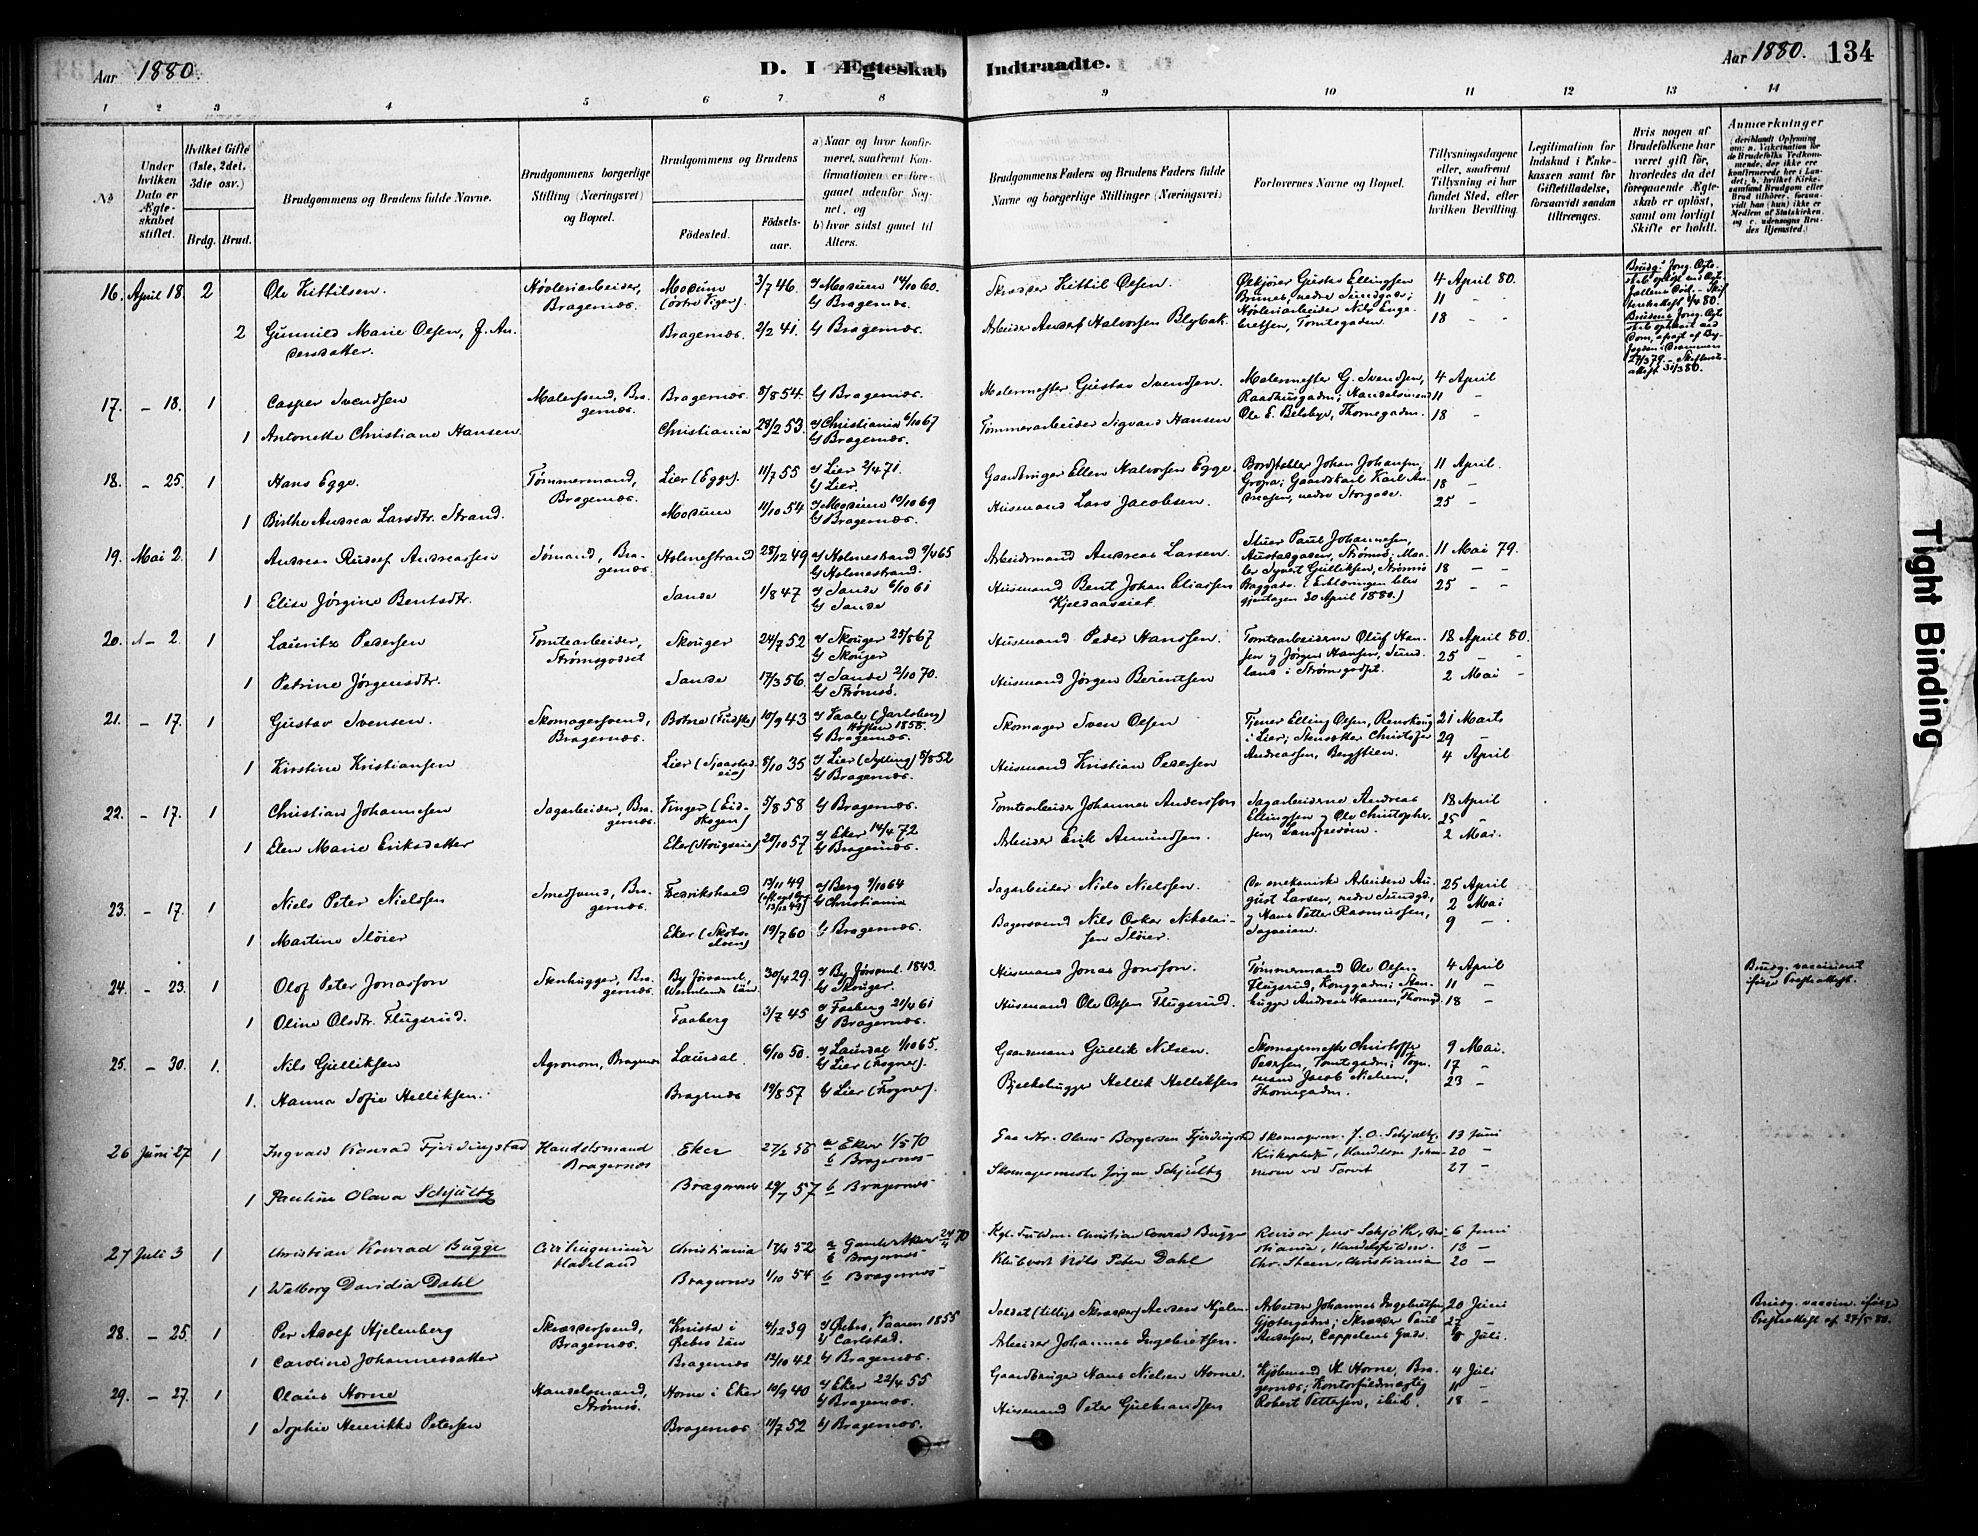 Aar 1880.
D. I Ægteskab Indtraadte.
Aar 1880. 134
1 2 3 4 5 6 7 8 9 10 11 12 13 14
No
Under hvilken Dato er Ægteskabet stiftet.
Hvilket Gifte (1ste, 2det, 3die osv.)
Brdg. Brud.
Brudgommens og Brudens fulde Navne.
Brudgommens borgerlige Stilling (Næringsvei) og Bopæl.
Brudgommens og Brudens
Fødested. Fødselsaar.
a) Naar og hvor konfirmeret, saafremt Konfirmationen er foregaaet udenfor Sognet, og
b) hvor sidst gaaet til Alters.
Brudgommens Faders og Brudens Faders fulde Navne og borgerlige Stillinger (Næringsvei)
Forlovernes Navne og Bopæl.
Tillysningsdagene eller, saafremt Tillysning ei har fundet Sted, efter hvilken Bevilling.
Legitimation for Indskud i Enkekassen samt for Giftetilladelse, forsaavidt saadan tiltrænges.
Hvis nogen af Brudefolkene har været gift før, hvorledes da det foregaaende Ægteskab er opløst, samt om lovligt Skifte er holdt.
Anmærkninger
16. April 18. 2 Ole Kittilsen. Høvleriarbeider, Bragernæs. Modum 3/7 46. a) Modum 14/10 60. b) Bragernæs. Skrædder Kittil Olsen. 4 April 80.
2 Gunnild Marie Olsen, f. Andersdatter. Bragernæs. 2/2 41. b) Bragernæs. Arbeider Anders Halvorsen Blybak. 11 - - 18 - -
17. - 18. 1 Casper Svendsen Malersvend, Bragernæs. Bragernæs 8/8 54. b) Bragernæs. Malermester Gustav Svendsen. Malermester G. Svendsen, Raadhusgaden; Handelsmand Ole E. Belsbye, Thornegaden. 4 April 11 - 18 -
1 Antonette Christiane Hansen. Christiania 28/2 53. a) Christiania 6/10 67 b) Bragernæs. Tømmerarbeider Sigvard Hansen
18. - 25. 1 Hans Egge. Tømmermand, Bragernæs. Lier (Egge). 11/7 55 a) Lier 2/4 71. b) Lier. Gaardbruger Ellen Halvorsen Egge. 11 April. 18 - 25 -
1 Birthe Andrea Larsdtr. Strand. Modum 11/10 54 a) Modum 10/10 69 b) Bragernæs. Husmand Lars Jacobsen
19. Mai 2. 1 Andreas Rudolf Andreassen Sømand, Bragernæs. Holmestrand 28/12 49 a) Holmestrand 9/4 65 b) Holmestrand. Arbeidsmand Andreas Larsen. 11 Mai 79. 18 - - 25 - -
1 Elise Jørgine Bentsdtr. Sande 1/8 47 a) Sande 6/10 61 b) Sande Husmand Bent Johan Eliassen Kjeldaaseiet.
20. - 2. 1 Lauritz Pedersen Tomtearbeider, Strømsgodset Skouger 24/7 52 b) Skouger Husmand Peder Hanssen. Tomtearbeiderne Oluf Hansen og Jørgen Hansen, Sundland i Strømsgodset. 18 April 80. 25 - - 2 Mai -
1 Petrine Jørgensdtr. Sande 17/3 56. a) Sande 2/10 70. b) Strømsø. Husmand Jørgen Berentsen
21. - 17. 1 Gustav Svensen. Skomagersvend, Bragernæs. 10/9 43 a) Vaale (Jarlsberg) Høsten 1858. b) Bragernæs. Skomager Sven Olsen 21 Marts 29 - 4 April
1 Kirstine Kristiansen 8/10 35 a) Lier (Sylling) 8/8 52 b) Bragernæs. Husmand Kristian Pedersen Andreassen, Bergstien.
22. - 17. 1 Christian Johannesen Sagarbeider, Bragernæs. Vinger (Eidskogen) 5/8 58 b) Bragernæs. Tomtearbeider Johannes Anderssen Sagarbeiderne Andreas Ellingsen og Ole Christophersen, Landfaldøen. 18 April 25 - 2 Mai.
1 Elen Marie Eriksdatter 20/10 57 a) Eker 14/4 72 b) Bragernæs. Arbeider Erik Amundsen.
23. - 17. 1 Niels Peter Nielsen Smedsvend, Bragernæs. Fredrikshald 13/11 49 a) Berg 9/10 64 b) Christiania Sagarbeider Niels Nielssen. De mekaniske Arbeidere August Larsen, nedre Sundgd; og Hans Petter Rasmussen, Sagveien. 25 April 2 Mai 9 -
1 Martine Sløier 19/7 60 b) Bragernæs. Bagersvend Nils Oskar Nikolaisen Sløier.
24. - 23. 1 Olof Peter Jonasson Stenhugger, Bragernæs. Wermlands Län 30/4 29. 1843. b) Skouger. Husmand Jonas Jonsson. Tømmermand Ole Olsen Flugsrud, Konggaden; Stenhugger Andreas Hansen, Thornegd. 4 April 11 - 18 - Brudg. vaccineret ifølge Præsteattest.
1 Oline Olsdtr. Flugsrud. Faaberg 3/7 45 a) Faaberg 21/4 61 b) Bragernæs. Husmand Ole Olsen Flugsrud.
25. - 30. 1. Nils Gulliksen Agronom, Bragernæs Laurdal 6/10 50. a) Laurdal 1/10 65. b) Lier (Frogner). Gaardmand Gullik Nilsen. Skomagermester Christoffer Pedersen, Tomtegaden; Vognmand Jacob Nielsen, Thornegaden. 9 Mai. 17 - 23 -
1. Hanna Sofie Helliksen. Bragernæs 19/8 57 b) Lier (Frogner). Bjelkehugger Hellik Helliksen
26 Juni 27 1 Ingvald Konrad Fjerdingstad Handelsmand Bragernæs Eker 27/2 56 a Eker 1/5 70 b Bragernæs Olaus Borgersen Fjerdingstad Skomagerm. J. O. Schjultz, 13 Juni 20 - 27 -
1 Pauline Olava Schjultz Bragernæs 29/7 57 b Bragernæs Skomagermester Jørgen Schjultz
27 Juli 3 1 Christian Konrad Bugge Civilingeniør Hadeland Christiania 17/4 52 a Gamle Aker 24/4 70 b Bragernæs Kgl. Fuldm. Christian Conrad Bugge Revisor Jens Schjøth, Christiania, Handelsfuldm. Chr. Steen, Christiania 6 Juni 13 - 20 -
1 Walborg Davidia Dahl Bragernæs 1/10 54 b Bragernæs Klubvært Nils Peter Dahl
28. - 25. 1 Per Adolf Hjelenberg Skræddersvend, Bragernæs. Knista i Örebro Län 4/12 39 a) Örebro, Vaaren 1855 b) Carlstad. Arbeider Johannes Ingebretsen, Gjetergaden; Skrædder Paul Andersen, Cappelens Gade. 20 Juni Juli. Brudg. vaccin. ifølge Præsteattest af 27/5 80.
1 Caroline Johannesdatter Bragernæs 12/10 42 b) Bragernæs. Arbeider Johannes Ingebretsen.
29. - 27. 1 Olaus Horne Handelsmand, Strømsø. Horne i Eker 10/9 40 a) Eker 22/4 55 b) Bragernæs. Gaardbruger Hans Nielsen Horne. Kjøbmand H. Horne, Bragernæs; Kontorfuldmægtig Robert Pettersen, ibid. 4 Juli 11 - 18 -
1 Sophie Henrikke Petersen Bragernæs 11/7 52 b) Bragernæs. Husmand Peter Gulbrandsen
Tight Binding